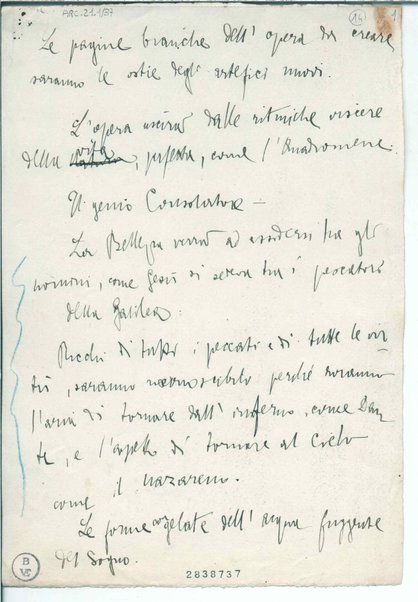 ARC.21.1/37
14
1
Le pagine bianche dell'opera da creare
saranno le ostie degli artefici nuovi.
L'opera uscirà dalle ritmiche viscere
vita
della natura, perfetta, come l'Anadiomene.
Il genio Consolatore —
La Bellezza verrà ad assidersi tra gli
uomini, come Gesù si sedeva tra i pescatori
della Galilea.
Ricchi di tutti i peccati e di tutte le vir
tù, saranno perché avranno
l'aria di tornare dall'inferno, come Dan
te, e l'aspetto di tornare al Cielo
come il Nazareno.
Le forme congelate dell'acqua fuggente
del Sogno.
B
VE
2838737